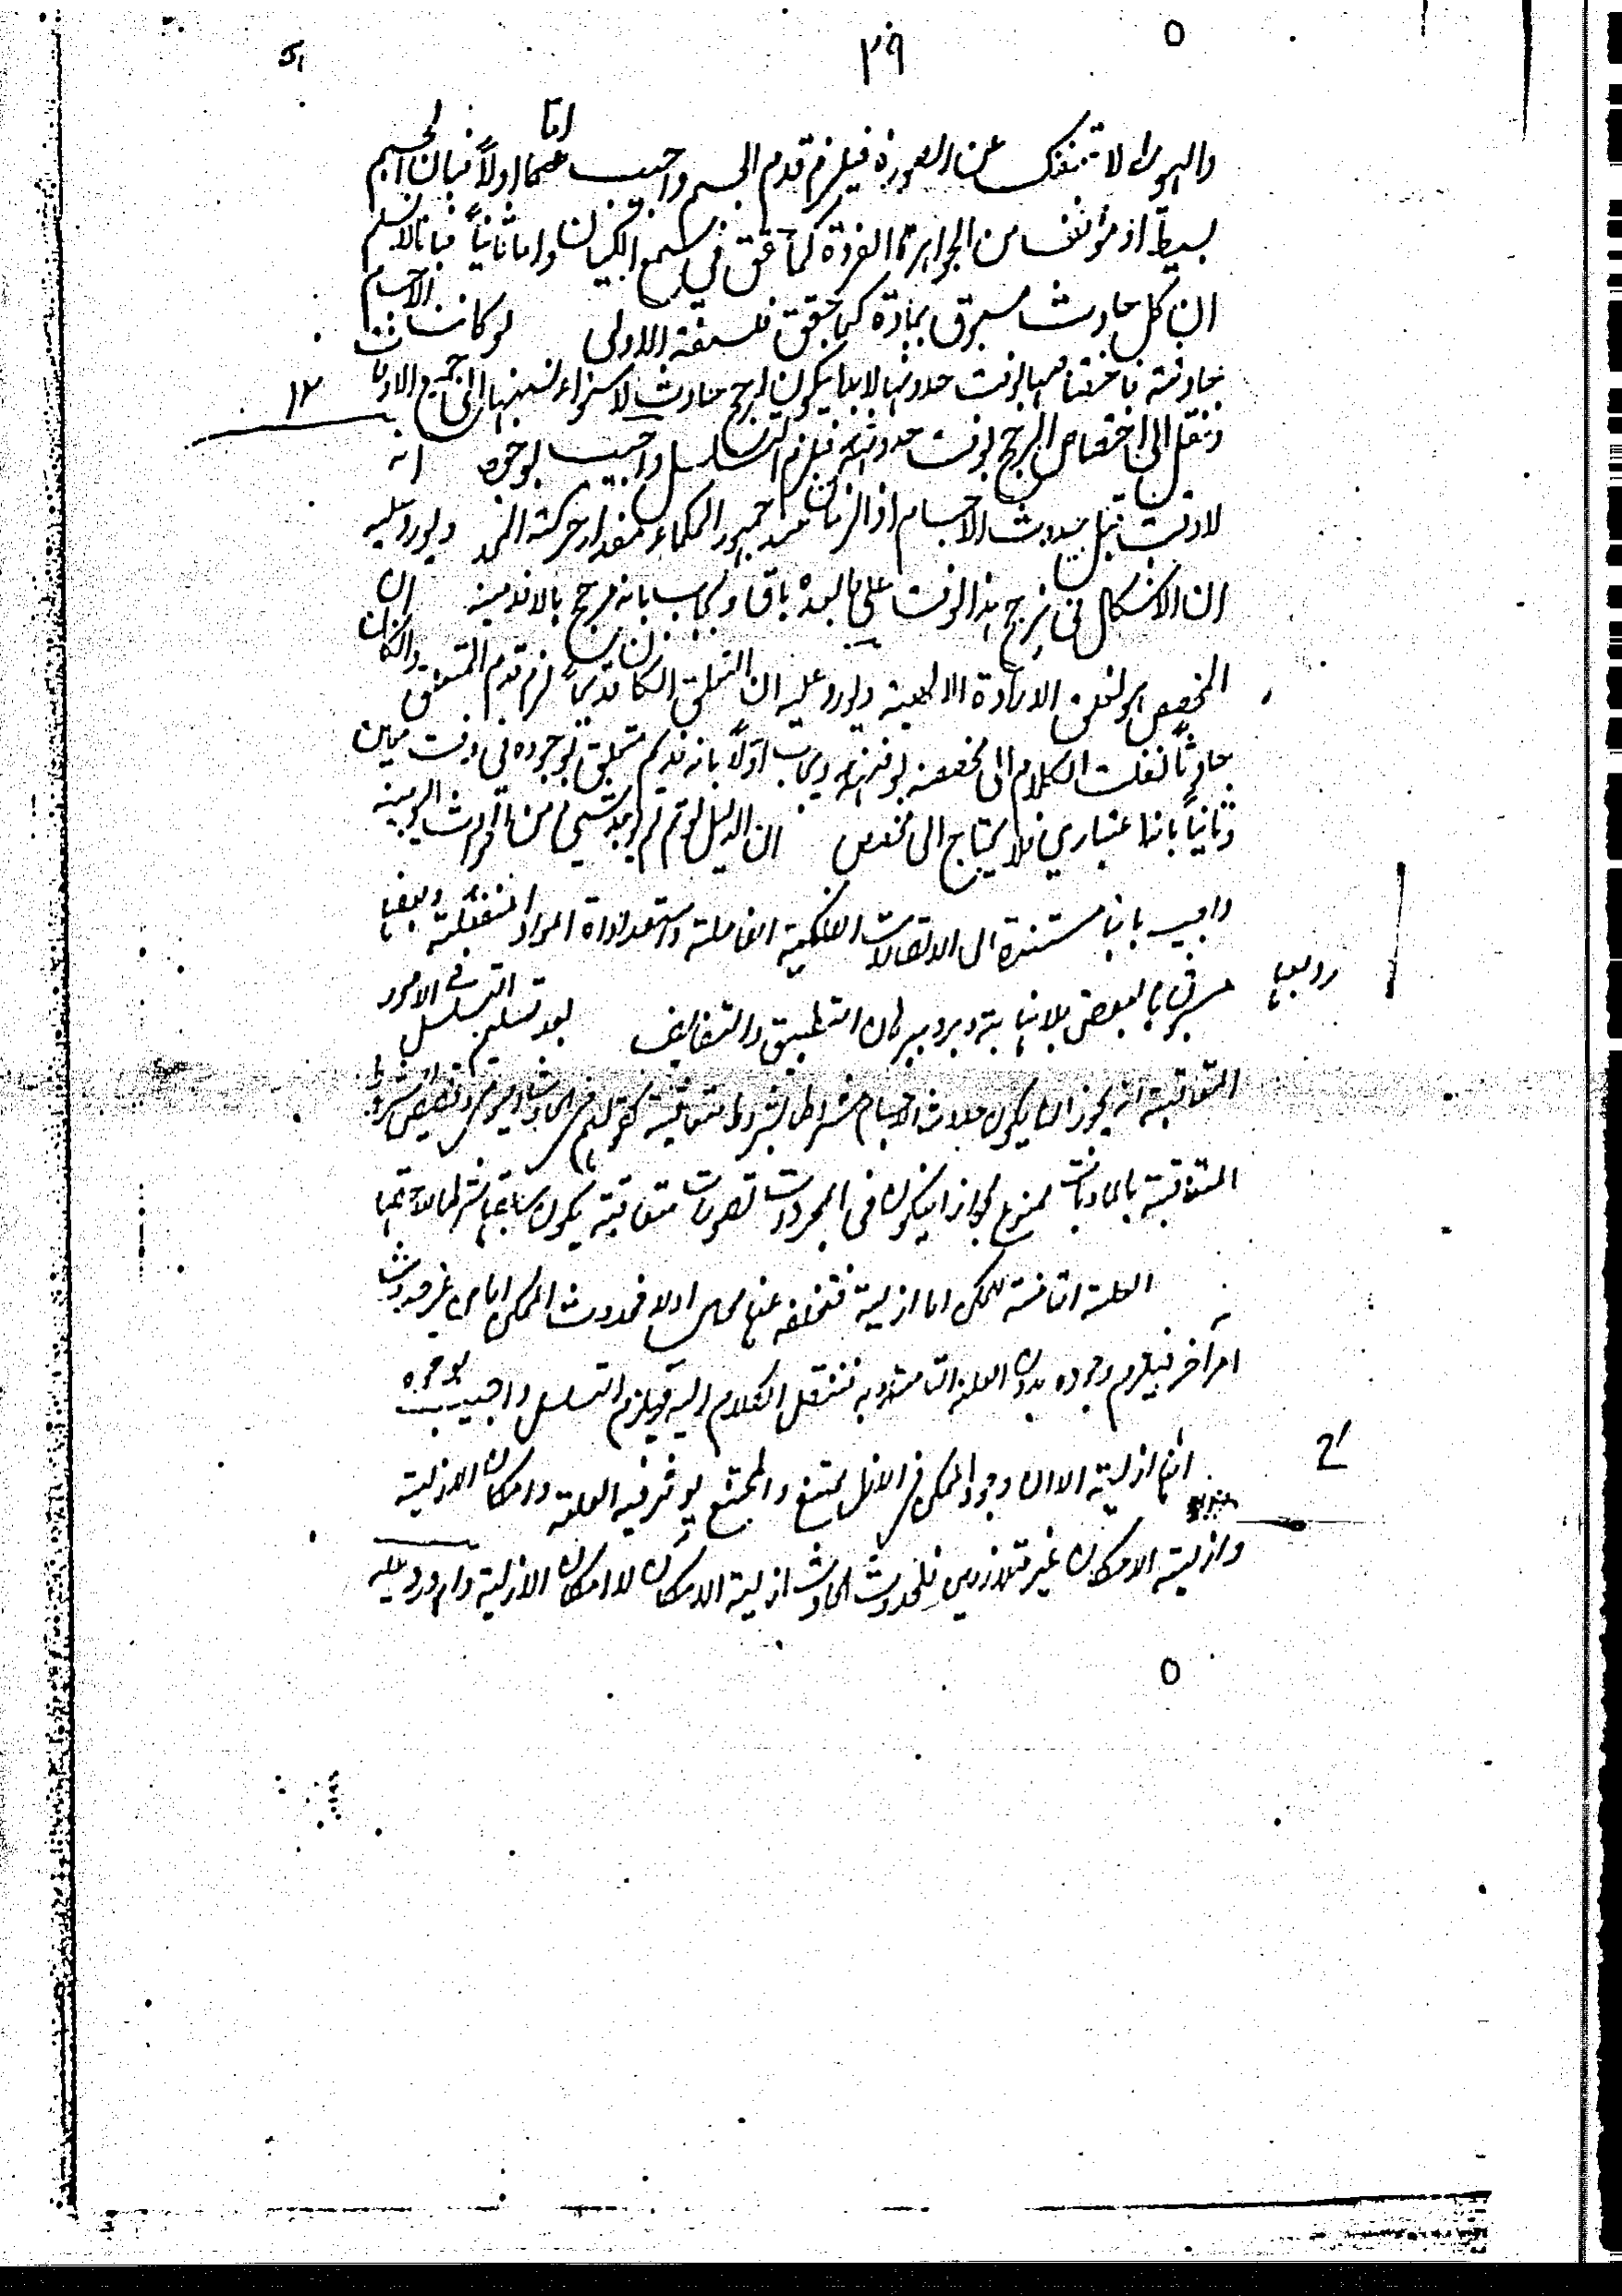 ٢٩
والهيولى لا تنفك عن الصورة فيلزم قدم الجسم واجيب عنهما اما اولاً فبان الجسم
بسيط او مؤلف من الجواهر الفردة كما حقق في سمع الكيان واما ثانياً فبانا لا نسلم
ان كل حادث مسبوق بمادة كما حقق فلسفة الاولى لو كانت الاجسام
حادثة فاختصاصها بوقت حدوثها لا بد ان يكون لمرجح حادث لاستواء نسبتها الى جميع الاوقات
وننقل الى اختصاص المرجح بوقت حدوثه فيلزم التسلسل واجيب بوجوه انه
لا وقت قبل حدوث الاجسام اذ الزمان عند جمهور الحكماء مقدار حركة ويورد عليه
ان الاشكال في ترجح هذا الوقت على ما بعده باق ويجاب بانه مرجح بالاقدمية ان
المخصص هو تعلق الارادة الالهية ويورد عليه ان التعلق ان كان قديماً لزم قدم المتعلق وان كان
حادثاً نقلت الكلام الى مخصصه بوقته ويجاب اولاً بانه قديم متعلق بوجوده في وقت معين
وثانياً بانه اعتباري فلا يحتاج الى مخصص ان الدليل لو تم لم يوجد شيء من الحوادث اليومية
واجيب بانها مستندة الى الاتصالات الفلكية الفاعلة واستعدادات المواد المنفعلة وبعضها
مسبوق بالبعض بلا نهاية ورد ببرهان التطبيق والتضايف بعد تسليم التسلسل في الامور
المتعاقبة انه يجوز ان يكون حدوث الاجسام مشروطا بشروط متعاقبة كقولهم في الحادث اليومي وتخصيص الشروط
المتعاقبة بالماديات ممنوع لجواز ان يكون في المجردات تصورات متعاقبة يكون سابقها شرطا للاحقها
العلة التامة للممكن اما ازلية فتخلفه عنها محال او لا فحدوث الممكن اما من غير حدوث
امر آخر فيلزم وجوده بدون العلة التامة او به فننقل الكلام اليه ويلزم التسلسل واجيب بوجوه
انها ازلية الا ان وجود الممكن في الازل ممتنع والممتنع لا يؤثر فيه العلة وامكان الازلية
وازلية الامكان غير متلازمين فلحدوث الحادث ازلية الامكان لا امكان الازلية واورد عليه